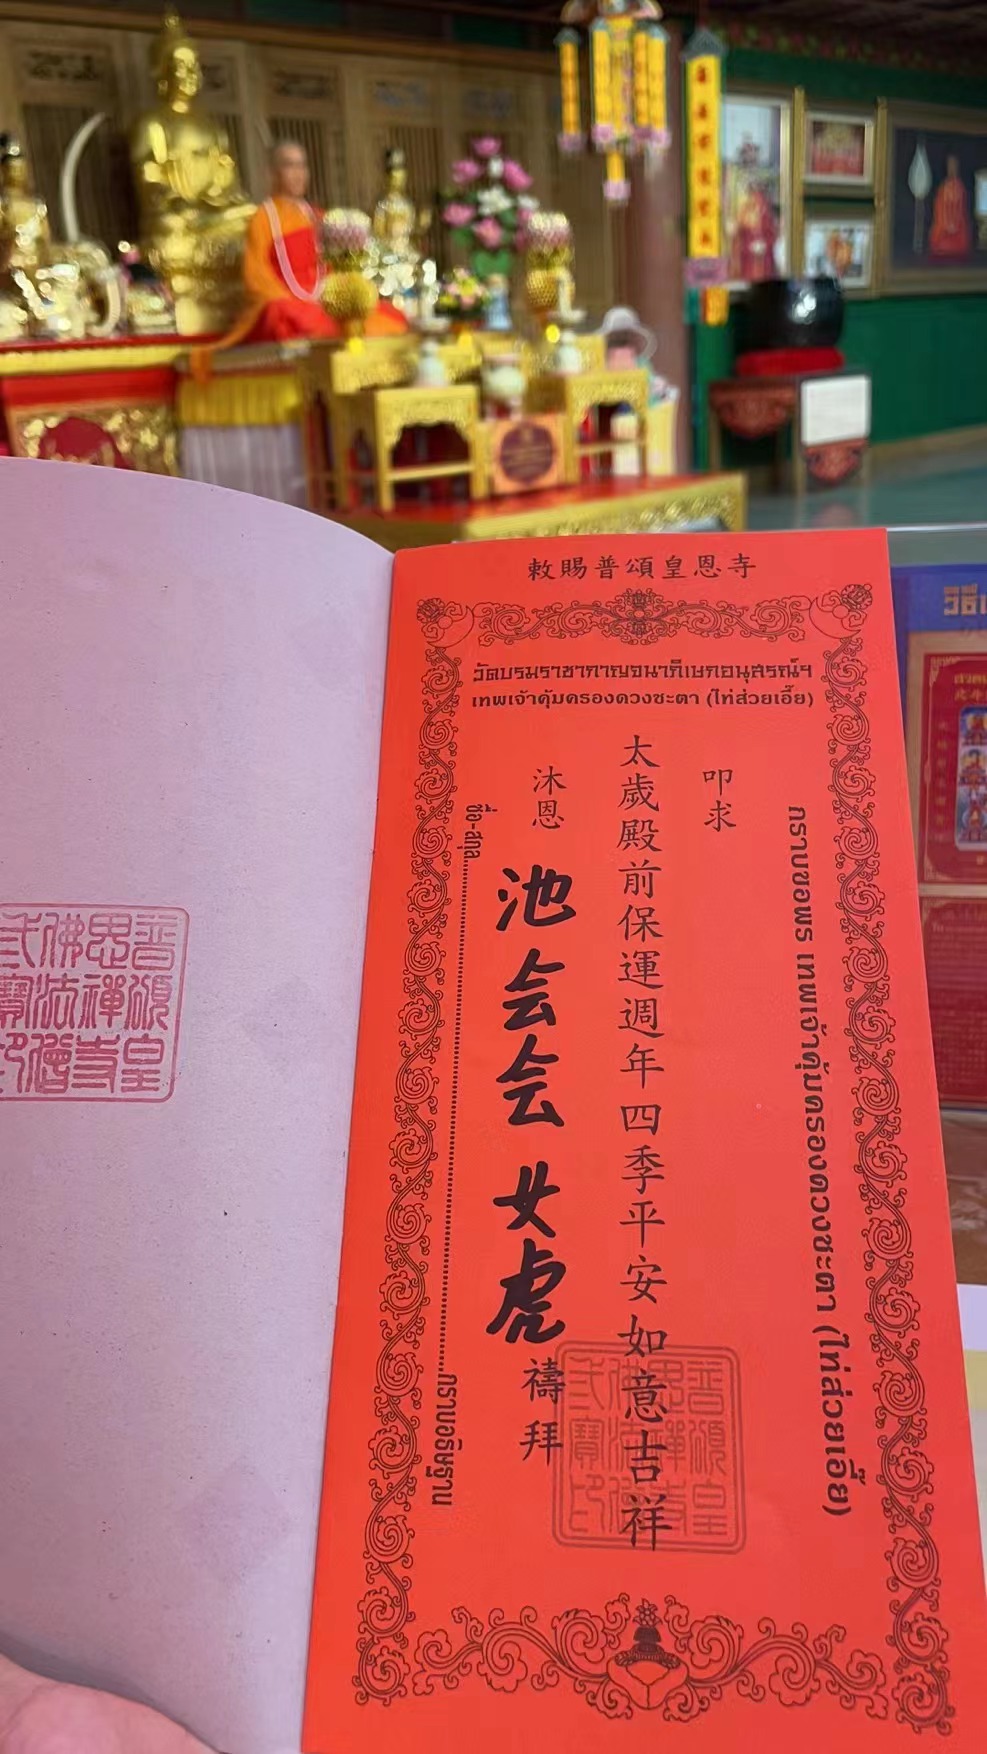 敕賜普頌皇恩寺
วัดบรมราชากาญจนาภิเษกอนุสรณ์ฯ
เทพเจ้าคุ้มครองดวงชะตา (ไท่ส่วยเอี๊ย)
กราบขอพร เทพเจ้าคุ้มครองดวงชะตา (ไท่ส่วยเอี๊ย)
叩求
太歲殿前保運週年四季平安如意吉祥
沐恩 池会会 女虎 禱拜
ชื่อ-สกุล กราบอธิษฐาน
普頌皇
恩禪寺
佛法僧
弍寶印